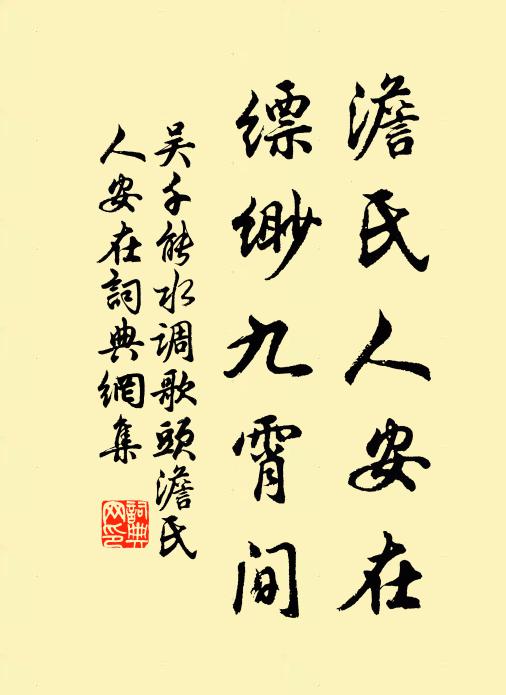 澹氏人安在
缥缈九霄间
吴千能水调歌頭澹氏
人安在詞典網集
詞典
网印